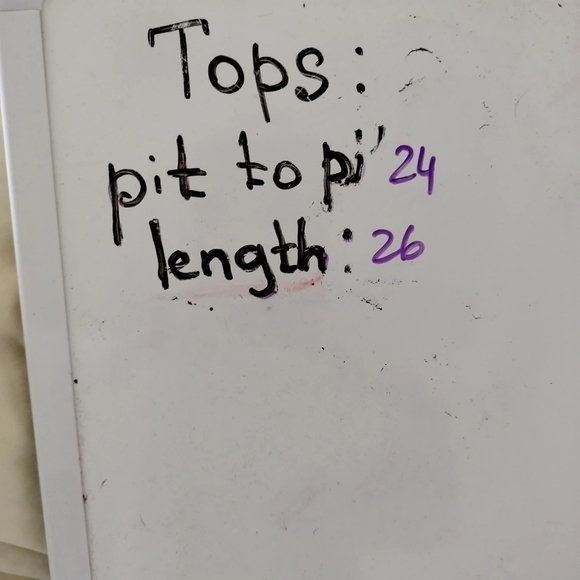 Tops:
pit to pi' 24
length: 26